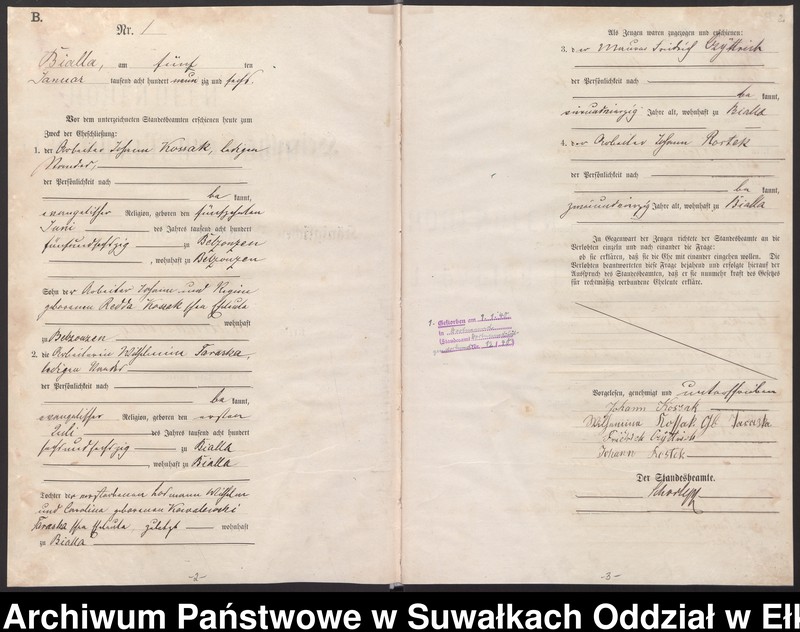 B.
Nr. 1
Bialla, am fünf ten
Januar tausend acht hundert neun zig und sechs.
Vor dem unterzeichneten Standesbeamten erschienen heute zum
Zweck der Eheschließung:
1. der Arbeiter Johann Kossak, ledigen
Standes,
der Persönlichkeit nach
be kannt,
evangelischer Religion, geboren den fünfzehnten
Juni des Jahres tausend acht hundert
fünfundsechzig zu Belzonzen
, wohnhaft zu Belzonzen
Sohn der Arbeiter Johann und Regine
geborenen Redda Kossak'schen Eheleute
wohnhaft
zu Belzonzen
2. die Arbeiterin Wilhelmine Taraska,
ledigen Standes
der Persönlichkeit nach
be kannt,
evangelischer Religion, geboren den ersten
Juli des Jahres tausend acht hundert
sechsundsechzig zu Bialla
, wohnhaft zu Bialla
Tochter der verstorbenen Wilhelm
und Caroline geborenen Kowalewski
Taraska'schen Eheleute zuletzt wohnhaft
zu Bialla
-2-
2
Als Zeugen waren zugezogen und erschienen:
3. der Maurer Friedrich
der Persönlichkeit nach
be kannt,
Jahre alt, wohnhaft zu Bialla
4. der Arbeiter Johann Rostek
der Persönlichkeit nach
be kannt,
Jahre alt, wohnhaft zu Bialla
In Gegenwart der Zeugen richtete der Standesbeamte an die
Verlobten einzeln und nach einander die Frage:
ob sie erklären, daß sie die Ehe mit einander eingehen wollen. Die
Verlobten beantworteten diese Frage bejahend und erfolgte hierauf der
Ausspruch des Standesbeamten, daß er sie nunmehr kraft des Gesetzes
für rechtmäßig verbundene Eheleute erkläre.
1. Gestorben am
in
Standesamt
Vorgelesen, genehmigt und unterschrieben
Johann Kossak
Wilhelmina Kossak geb Taraska
Johann Rostek
Der Standesbeamte.
-3-
Archiwum Państwowe w Suwałkach Oddział w Ełk